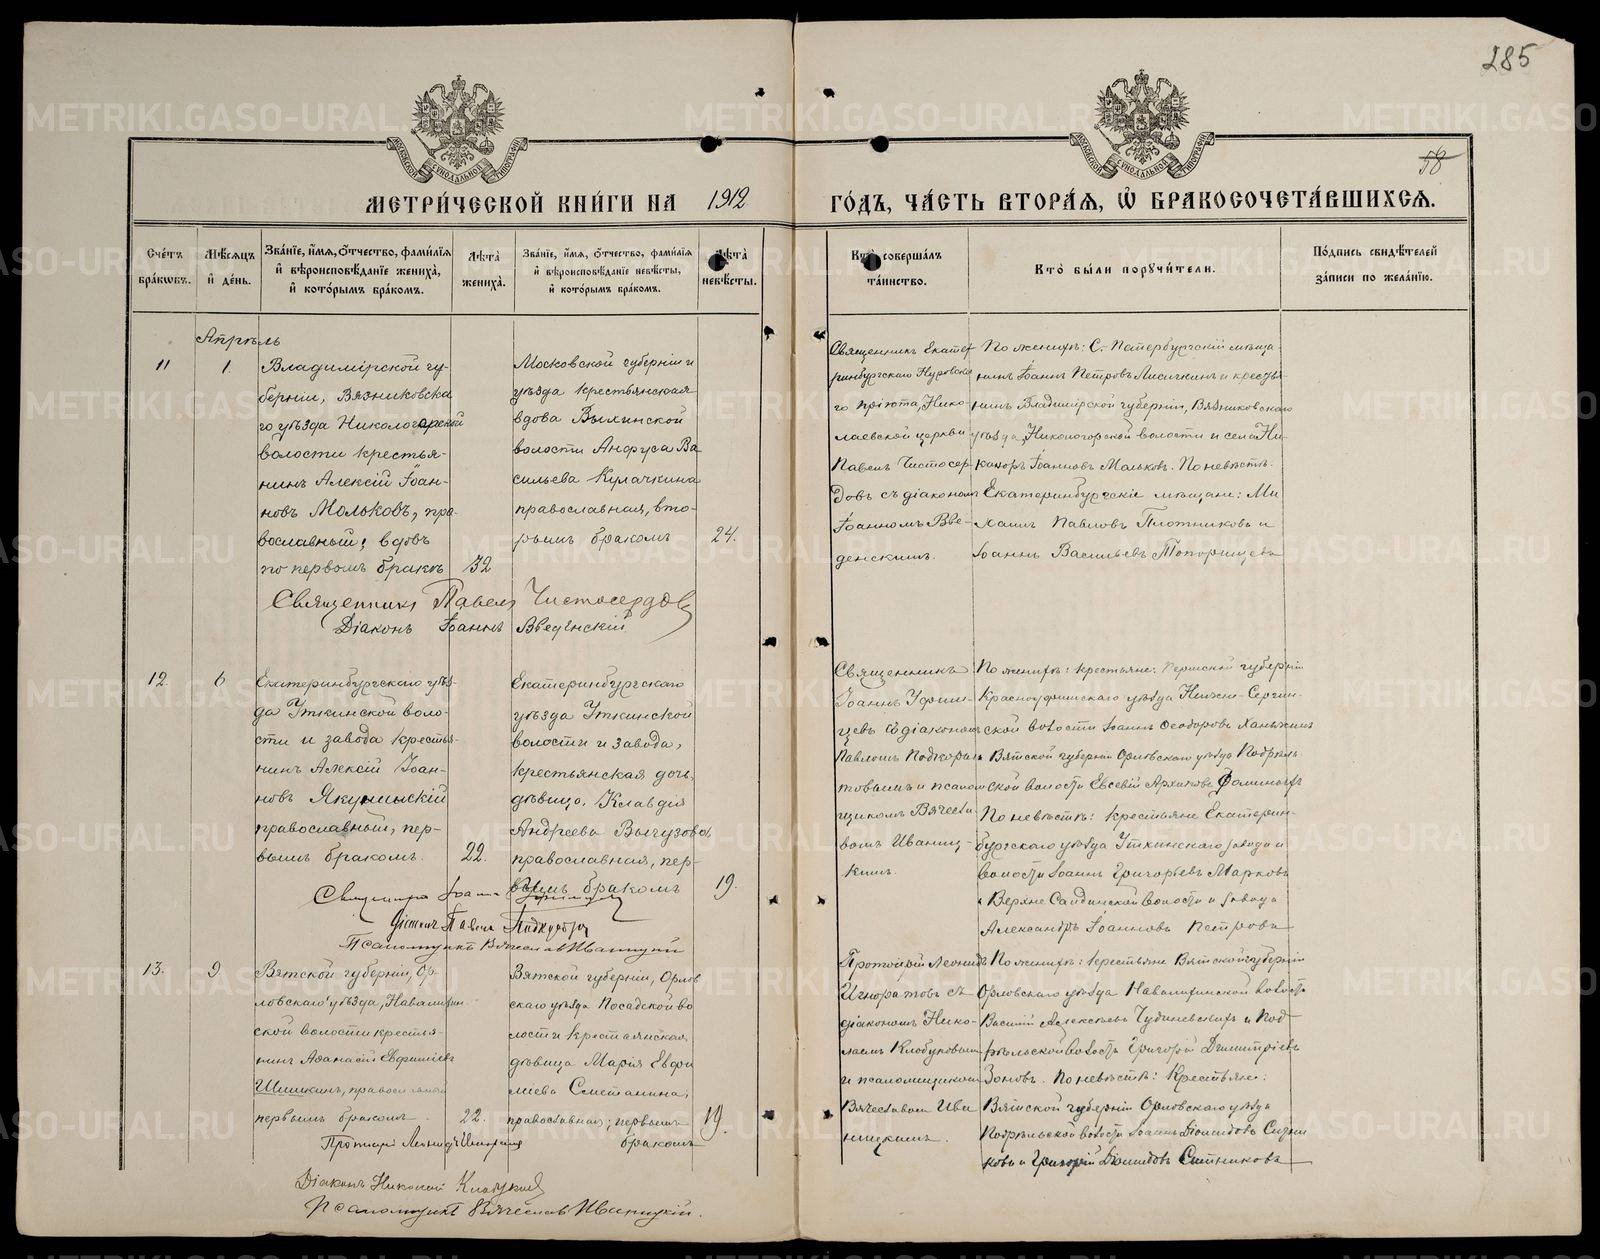 285
58
МЕТРИ́ЧЕСКОЙ КНИ́ГИ НА 1912 ГО́ДЪ, ЧА́СТЬ ВТОРА́Я, Ѿ БРАКОСОЧЕТА́ВШИХСЯ.
Сче́тъ бра́кѡвъ.
Мѣ́сяцъ и҆ де́нь.
Зва́нїе, и҆́мя, ѻ҆́тчество, фами́лїя и҆ вѣроисповѣ́данїе жениха̀, и҆ кото́рымъ бра́комъ.
Лѣ́та жениха̀.
Зва́нїе, и҆́мя, ѻ҆́тчество, фами́лїя и҆ вѣроисповѣ́данїе невѣ́сты, и҆ кото́рымъ бра́комъ.
Лѣ́та невѣ́сты.
Кто̀ соверша́лъ та́инство.
Кто̀ бы́ли поручи́тели.
По́дпись свидѣ́телей за́писи по жела́нїю.
Апрѣль
11
1.
Владимірской гу-
берніи, Вязниковска
го уѣзда Никологорской
волости крестья-
нинъ Алексій Іоан-
новъ Мольковъ, пра-
вославный, вдовъ
по первомъ бракѣ
32
Московской губерніи и
уѣзда крестьянская
вдова
волости Анфуса Ва
сильева Кулачкина
православная, вто-
рымъ бракомъ
24.
Священникъ Екатер
ринбургскаго Нуровска
го пріюта, Нико-
лаевской церкви
Павелъ Чистосер-
довъ съ діакономъ
Іоанномъ Вве-
денскимъ.
По женихѣ: С. Петербургскій мѣща-
нинъ Іоаннъ Петровъ Лисичкинъ и крестья-
нинъ Владимірской губерніи, Вязниковскаго
уѣзда, Никологорской волости и села Ни-
каноръ Іоанновъ Мольковъ. По невѣстѣ:
Екатеринбургскіе мѣщане: Ми
хаилъ Павловъ Плотниковъ и
Іоаннъ Васильевъ Топорищевъ
Священникъ Павелъ Чистосердовъ
Діаконъ Іоаннъ Введенскій
12.
6
Екатеринбургскаго уѣз-
да Уткинской воло-
сти и завода крестья-
нинъ Алексій Іоан-
новъ Якушинскій
православный, пер-
вымъ бракомъ.
22.
Екатеринбургскаго
уѣзда Уткинской
волости и завода,
крестьянская дочь,
дѣвица, Клавдія
Андреева Вычузова
православная, пер-
вымъ бракомъ
19.
Священникъ
Іоаннъ Уфим-
цевъ съ діакономъ
Павломъ Подкоры-
товымъ и псалом
щикомъ Вячесла-
вомъ Иваниц-
кимъ.
По женихѣ: крестьяне: Пермской губерніи
Красноуфимскаго уѣзда Нижне-Сергин-
ской волости Іоаннъ Ѳеодоровъ Ханжинъ
Вятской губерніи Орловскаго уѣзда Подрѣль
ской волости Евсевій Архиповъ
По невѣстѣ: крестьяне Екатерин-
бургскаго уѣзда Уткинскаго завода и
волости Іоаннъ Григорьевъ Марковъ
и Верхне Салдинской волости и завода
Александръ Іоанновъ Петровъ
Священникъ Іоаннъ Уфимцевъ
Діаконъ Павелъ Подкорытовъ
Псаломщикъ Вячеславъ Иваницкій
13.
9.
Вятской губерніи, Ор-
ловскаго уѣзда, Навалихин
ской волости кресть-
нинъ Аѳанасій Евфиміевъ
Шишкинъ, православный
первымъ бракомъ.
22.
Вятской губерніи, Орлов
скаго уѣзда Посадской во
лости крестьянская
дѣвица Марія Евфи
міева Сметанина,
православная; первымъ
бракомъ
19.
Протоіерей Леонидъ
Игноратовъ съ
діакономъ Нико-
лаемъ Клобуковымъ
и псаломщикомъ
Вячеславомъ Ива
ницкимъ.
По женихѣ: крестьяне Вятской губерніи
Орловскаго уѣзда Навалихинской волости
Василій Алексѣевъ и Под-
рѣльской волости Григорій Димитріевъ
Зоновъ. По невѣстѣ: Крестьяне:
Вятской губерніи Орловскаго уѣзда
Подрѣльской волости Іоаннъ Діомидовъ Ситни
ковъ и Григорій Діомидовъ Ситниковъ
Протоіерей Леонидъ Игноратовъ
Діаконъ Николай Клобуковъ
Псаломщикъ Вячеславъ Иваницкій.
METRIKI.GASO-URAL.RU